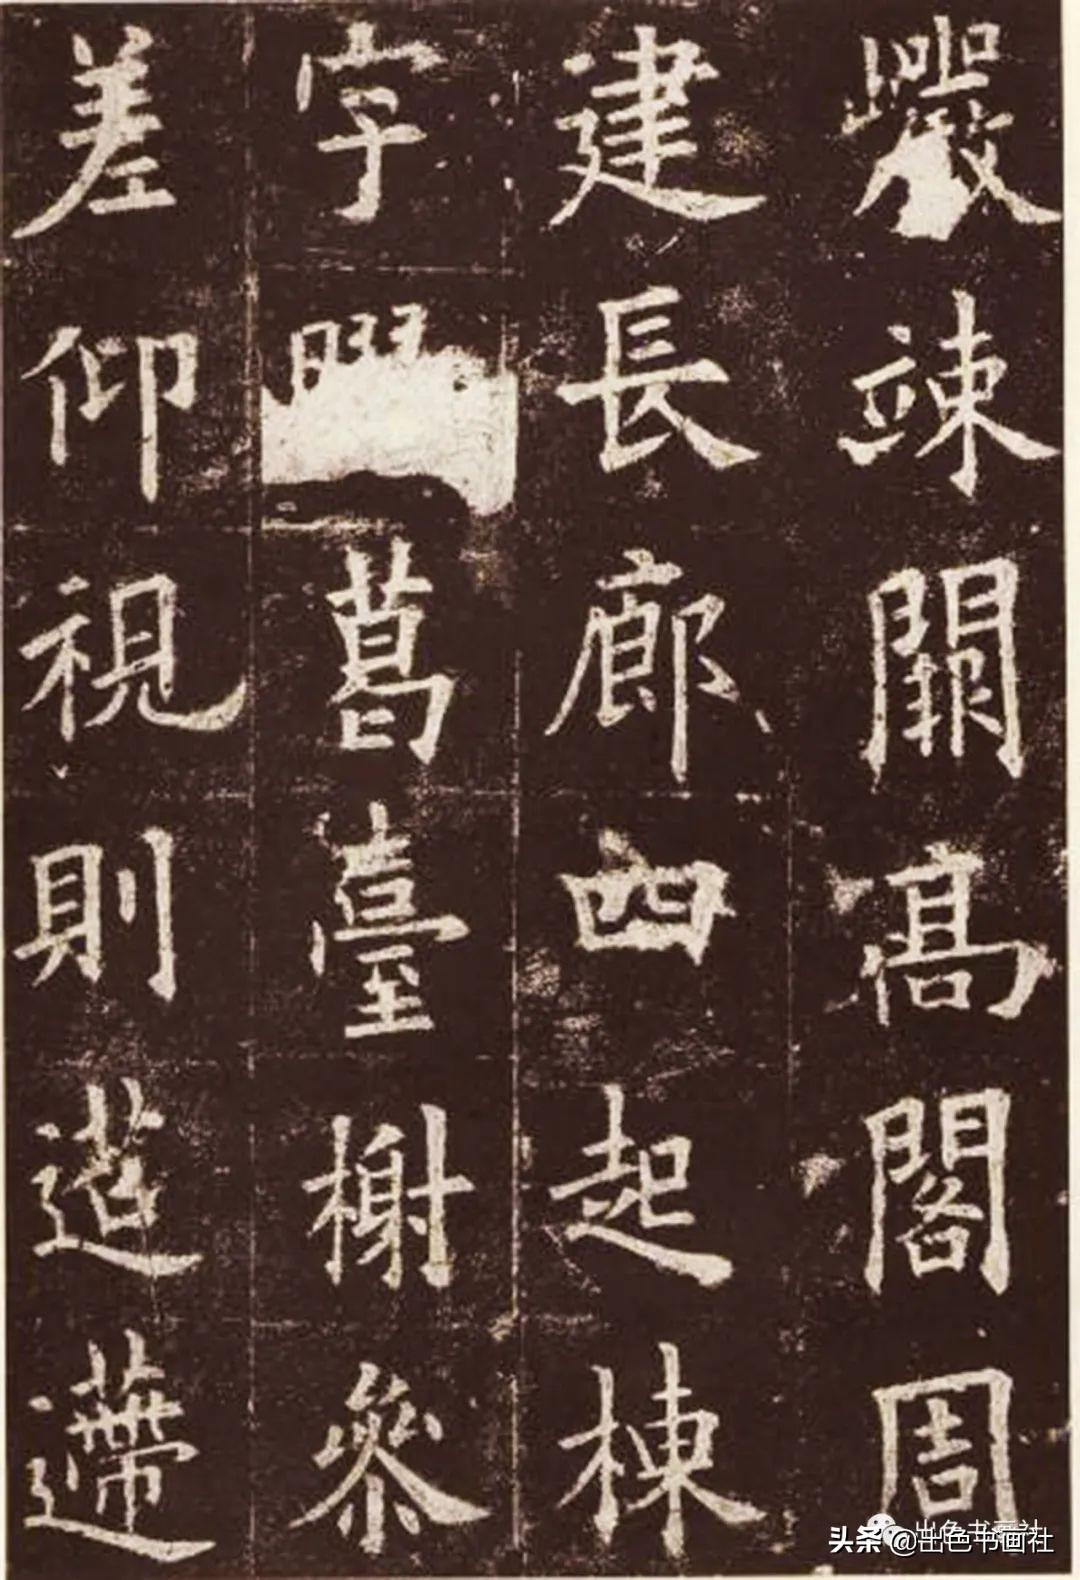 巖竦闕高閣周
建長廊四起棟
宇葛臺榭參
差仰視則迢遰
出色书画社
头条 @出色书画社